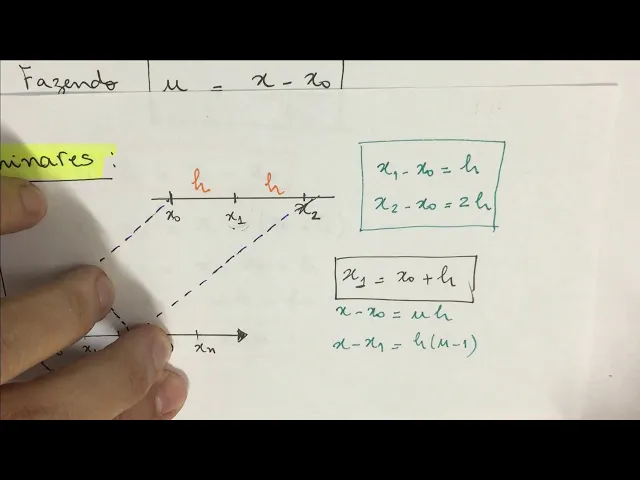 Fazendo u = x - x₀
minares :
h h
x₀ x₁ x₂
x₁ - x₀ = h
x₂ - x₀ = 2h
x₁ = x₀ + h
x - x₀ = u h
x - x₁ = h(u - 1)
xₙ